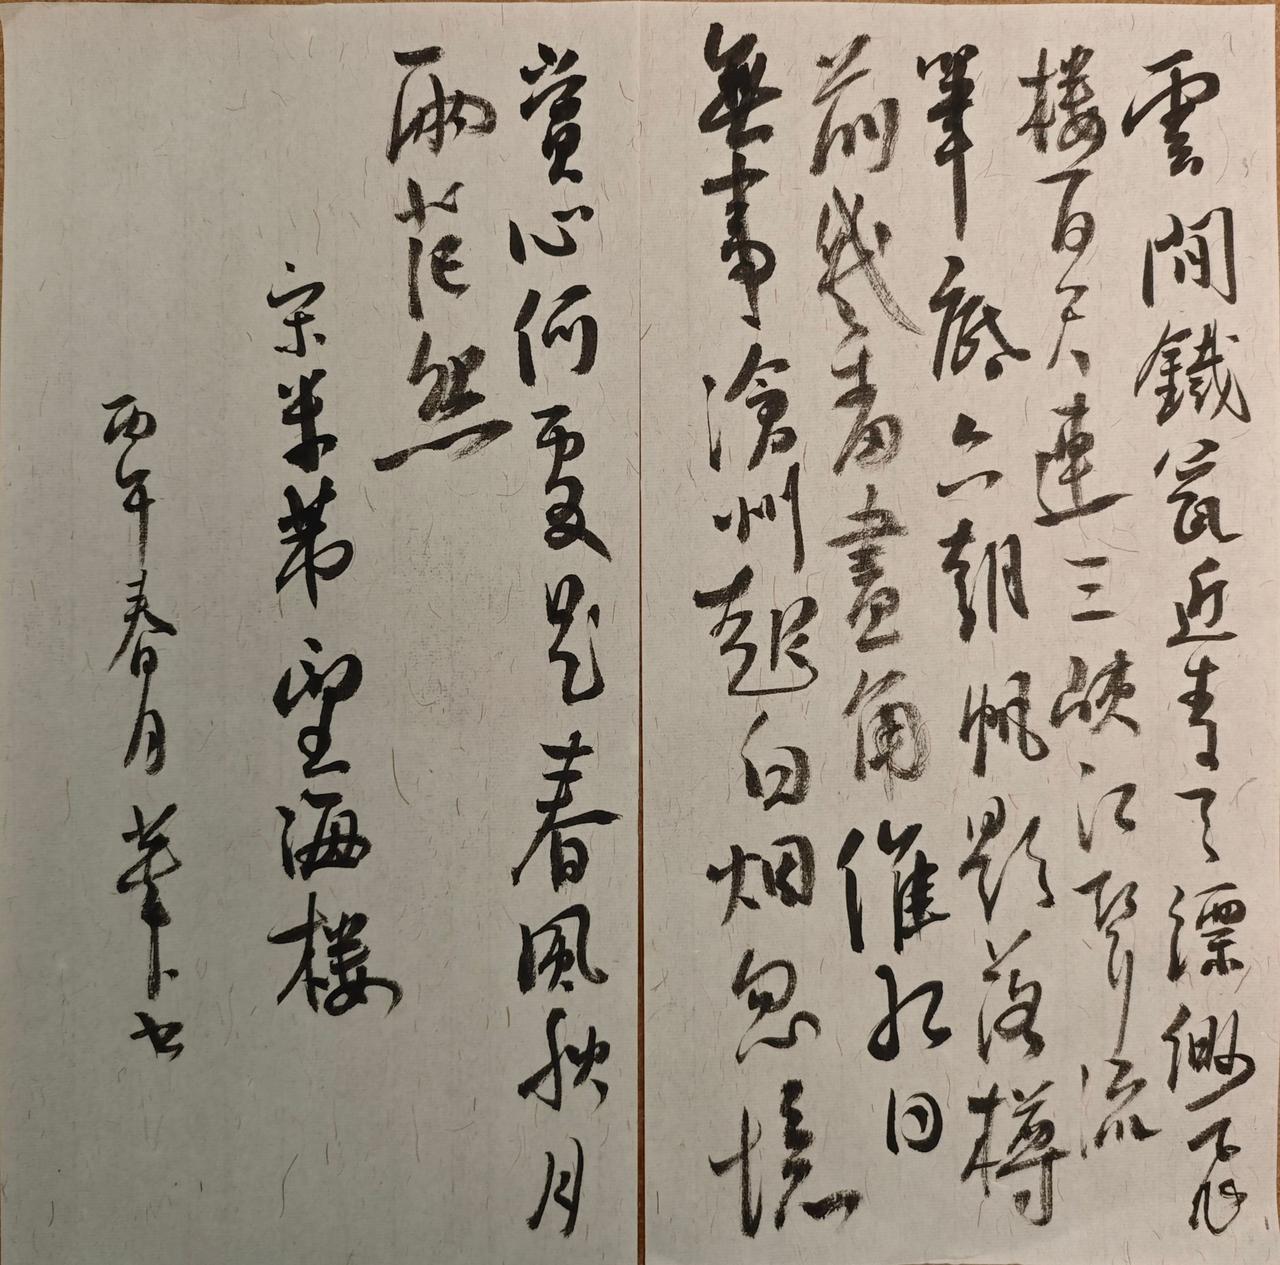 雲間鐵瓮近青天漂缈飛
楼百尺連三峡江聲流
筆底六朝帆影落樽
前幾番畫角催红日
無事滄州起白烟忽憶
賞心何處是春風秋月
兩茫然
宋米芾望海楼
丙午春月书